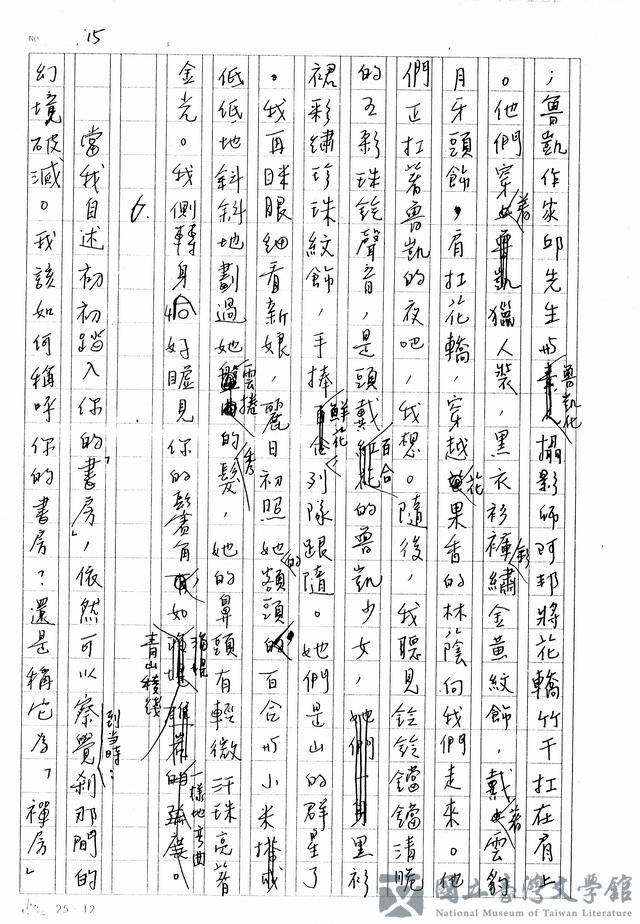 NO. 15
；魯凱作家邱先生與魯凱化攝影師阿邦將花轎竹干扛在肩上
。他們穿著獵人裝，黑衣衫褲繡金黃紋飾，戴著雲豹
月牙頭飾，肩扛花轎，穿越花果香的林蔭向我們走來。他
們正扛著魯凱的夜吧，我想。隨後，我聽見鈴鈴鐺鐺清脆
的五彩珠鈴聲音，是頭戴百合的魯凱少女，黑衫
裙彩繡珍珠紋飾，手捧鮮花列隊跟隨。她們是山的群星了
。我再眯眼細看新娘，麗日初照她額頭的百合與小米
低低地斜斜地劃過她雲捲的秀髮，她的鼻頭有輕微汗珠亮著
金光。我側轉身恰好瞄見你的鬢角，如
青山稜線一樣地彎曲。
6.
當我自述初初踏入你的「書房」，依然可以察覺到當時：剎那間的
幻境破滅。我該如何稱呼你的書房？還是稱它為「禪房」
25×12
國立臺灣文學館
National Museum of Taiwan Literature